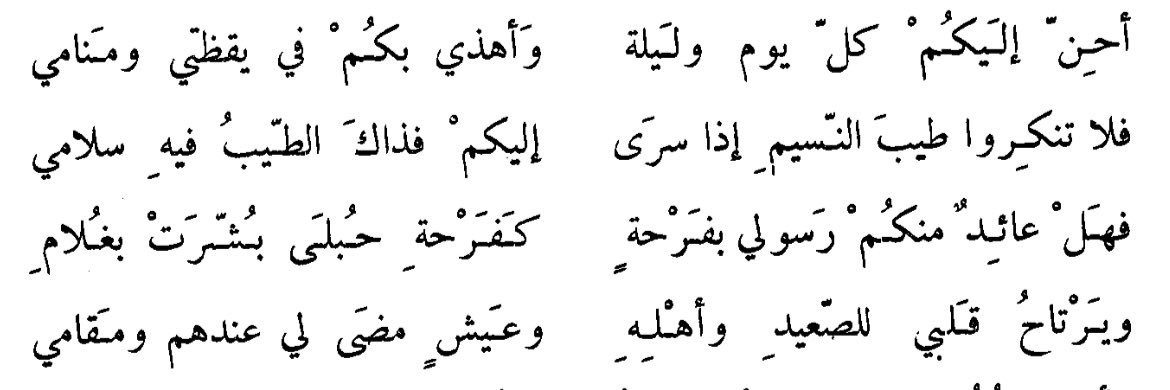 أحِنّ إلَيكُمْ كلّ يوم ولَيلة وَأهذي بكُمْ في يقظتي ومَنامي
فلا تنكِروا طيبَ النّسيمِ إذا سرَى إليكمْ فذاكَ الطيّبُ فيهِ سلامي
فهَلْ عائِدٌ منكُمْ رَسولي بفَرْحةٍ كَفَرْحةِ حُبلَى بُشّرَتْ بغُلامِ
ويَرْتاحُ قَلبي للصّعيدِ وأهْلِهِ وعَيشٍ مضَى لي عندهم ومَقامي